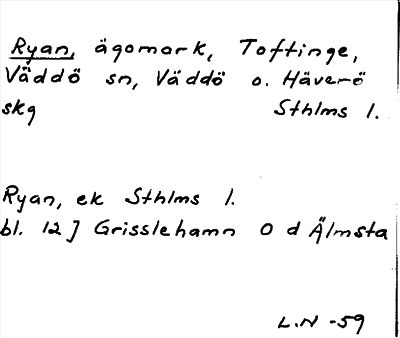 Ryan, ägomark, Toftinge,
Väddö sn, Väddö o. Häverö
skg Sthlms l.
Ryan, ek Sthlms l.
bl. 12] Grisslehamn O d Älmsta
L.N -59